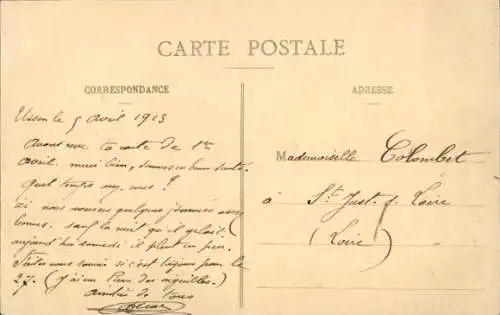 CARTE POSTALE
CORRESPONDANCE
Usson le 5 avril 1913
Avons reçu ta carte de 1er
avril. merci bien, sommes en bonne santé.
Quel temps
ici nous quelques journées assez
bonnes. sauf la nuit qu'il gelait.
aujourd'hu samedi il pleut un peu.
Faites nous savoir si c'est toujours pour le
27. (J'ai eu des aiguilles.)
amitiés de tous
ADRESSE
Mademoiselle Colombet
à St Just s. Loire
(Loire)